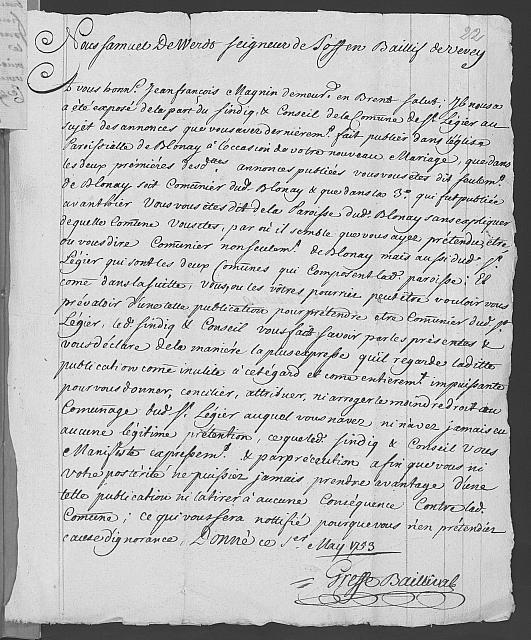 22
Nous Samuel De Werdt Seigneur de Toffen Baillif de Vevey
A vous honn.^r Jean françois Magnin demeur.^t en Brent Salut; Il nous a
a été exposé de la part du Sindiq, & Conseil de la Comune de S.^t Légier au
sujet des annonces que vous avez dernièrem.^t fait publier dans l'église
Paroissielle de Blonay à l'occasion de votre nouveau Mariage, que dans
les deux prémiéres desd.^ttes annonces publiées vous vous êtes dit seulem.^t
de Blonay soit Comunier dud. Blonay & que dans la 3.^e qui fut publiée
avanthier Vous vous êtes dit de la Paroisse dud. Blonay sans expliquer
de quelle Comune Vous etes, par où il semble que vous ayez prétendu, être
ou vous dire Comunier non seulem.^t de Blonay mais aussi dud. S.^t
Légier qui sont les deux Comunes qui Composent lad. paroisse; Et
come dans la suitte, vous ou les vôtres pourriez peut être vouloir vous
prévaloir d'une telle publication pour prétendre etre Comunier dud. S.^t
Légier, led. Sindiq & Conseil vous fait savoir par les présentes &
vous déclare de la maniére la plus expresse qu'il regarde laditte
publication come inutile à cet égard et come entièrem.^t impuissante
pour vous donner, concilier, attribuer, ni arroger le moindre droit au
Comunage dud. S.^t Légier auquel vous n'avez ni n'avez jamais eu
aucune légitime prétention, ce que led. Sindiq & Conseil Vous
Manifeste expressem.^t & par précaution afin que vous ni
votre postérité ne puissiez jamais prendre avantage d'une
telle publication ni la tirer à aucune Conséquence Contre lad.
Comune; ce qui vous sera notifié pour que vous n'en prétendiez
cause d'ignorance, Donné ce 1.^er May 1753
Greffe Baillival